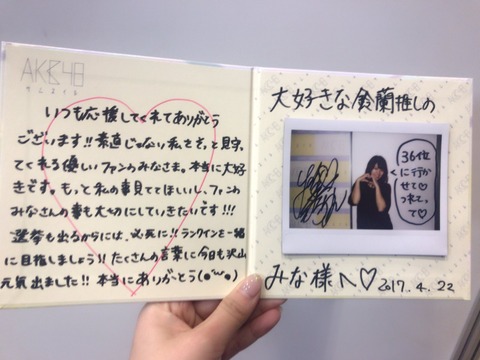 AKB48
いつも応援してくれてありがとう
ございます!!素直じゃない私をずっと見守っ
てくれる優しいファンのみなさま。本当に大好
きです。もっと私の事見ててほしいし、ファンの
みなさんの事も大切にしていきたいです!!!
選挙も出るからには、必死に!!ランクインを一緒
に目指しましょう!!たくさんの言葉に今日も沢山
元気出ました!!本当にありがとう(●'ω'●)
大好きな鈴蘭推しの
36位
に行か
せて♡
つれてっ
て♡
みな様へ♡
2017.4.22